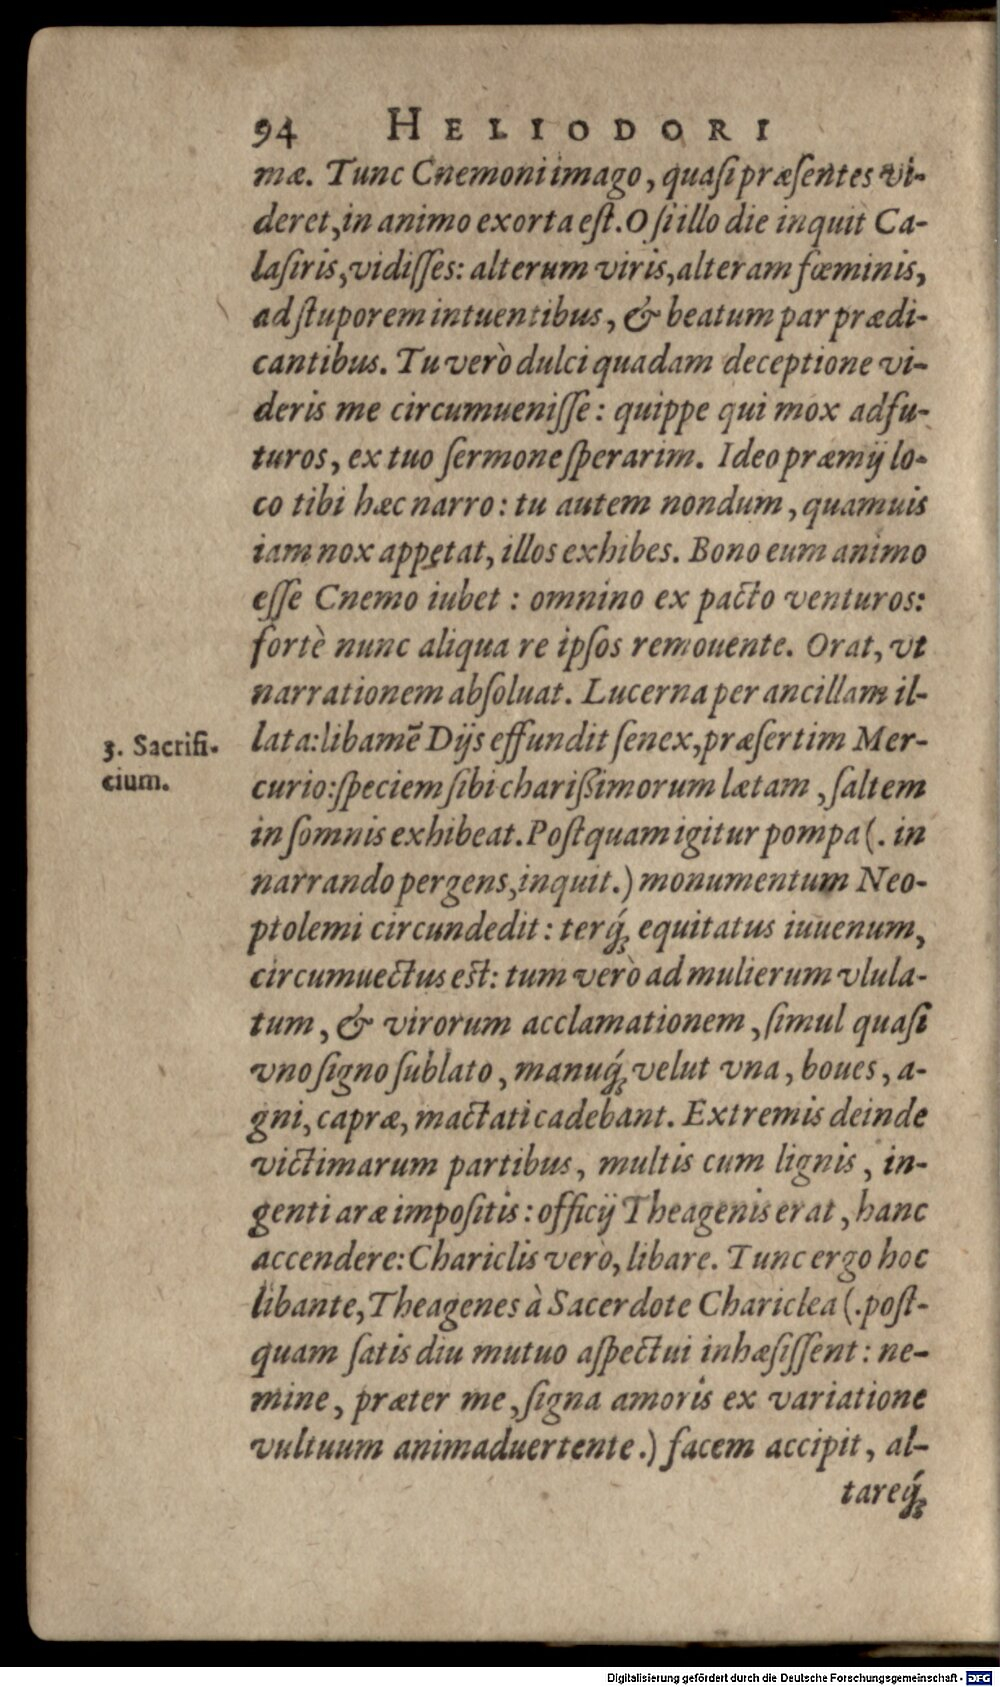 94 HELIODORI
mæ. Tunc Cnemoni imago, quaſi præſentes vi-
deret, in animo exorta eſt. O ſi illo die inquit Ca-
laſiris, vidiſſes: alterum viris, alteram fœminis,
ad ſtuporem intuentibus, & beatum par prædi-
cantibus. Tu verò dulci quadam deceptione vi-
deris me circumueniſſe: quippe qui mox adfu-
turos, ex tuo ſermone ſperarim. Ideo præmij lo-
co tibi hæc narro: tu autem nondum, quamuis
iam nox appetat, illos exhibes. Bono eum animo
eſſe Cnemo iubet: omnino ex pacto venturos:
fortè nunc aliqua re ipſos remouente. Orat, vt
narrationem abſoluat. Lucerna per ancillam il-
3. Sacrifi-
cium.
lata: libamē Dijs effundit ſenex, præſertim Mer-
curio: ſpeciem ſibi chariſsimorum lætam, ſaltem
in ſomnis exhibeat. Poſtquam igitur pompa (. in
narrando pergens, inquit.) monumentum Neo-
ptolemi circundedit: terq́ꝫ equitatus iuuenum,
circumuectus eſt: tum verò ad mulierum vlula-
tum, & virorum acclamationem, ſimul quaſi
vno ſigno ſublato, manuq́ꝫ velut vna, boues, a-
gni, capræ, mactati cadebant. Extremis deinde
victimarum partibus, multis cum lignis, in-
genti aræ impoſitis: officij Theagenis erat, hanc
accendere: Chariclis verò, libare. Tunc ergo hoc
libante, Theagenes à Sacerdote Chariclea (. poſt-
quam ſatis diu mutuo aſpectui inhæſiſſent: ne-
mine, præter me, ſigna amoris ex variatione
vultuum animaduertente.) facem accipit, al-
tareq́ꝫ
Digitalisierung gefördert durch die Deutsche Forschungsgemeinschaft - DFG